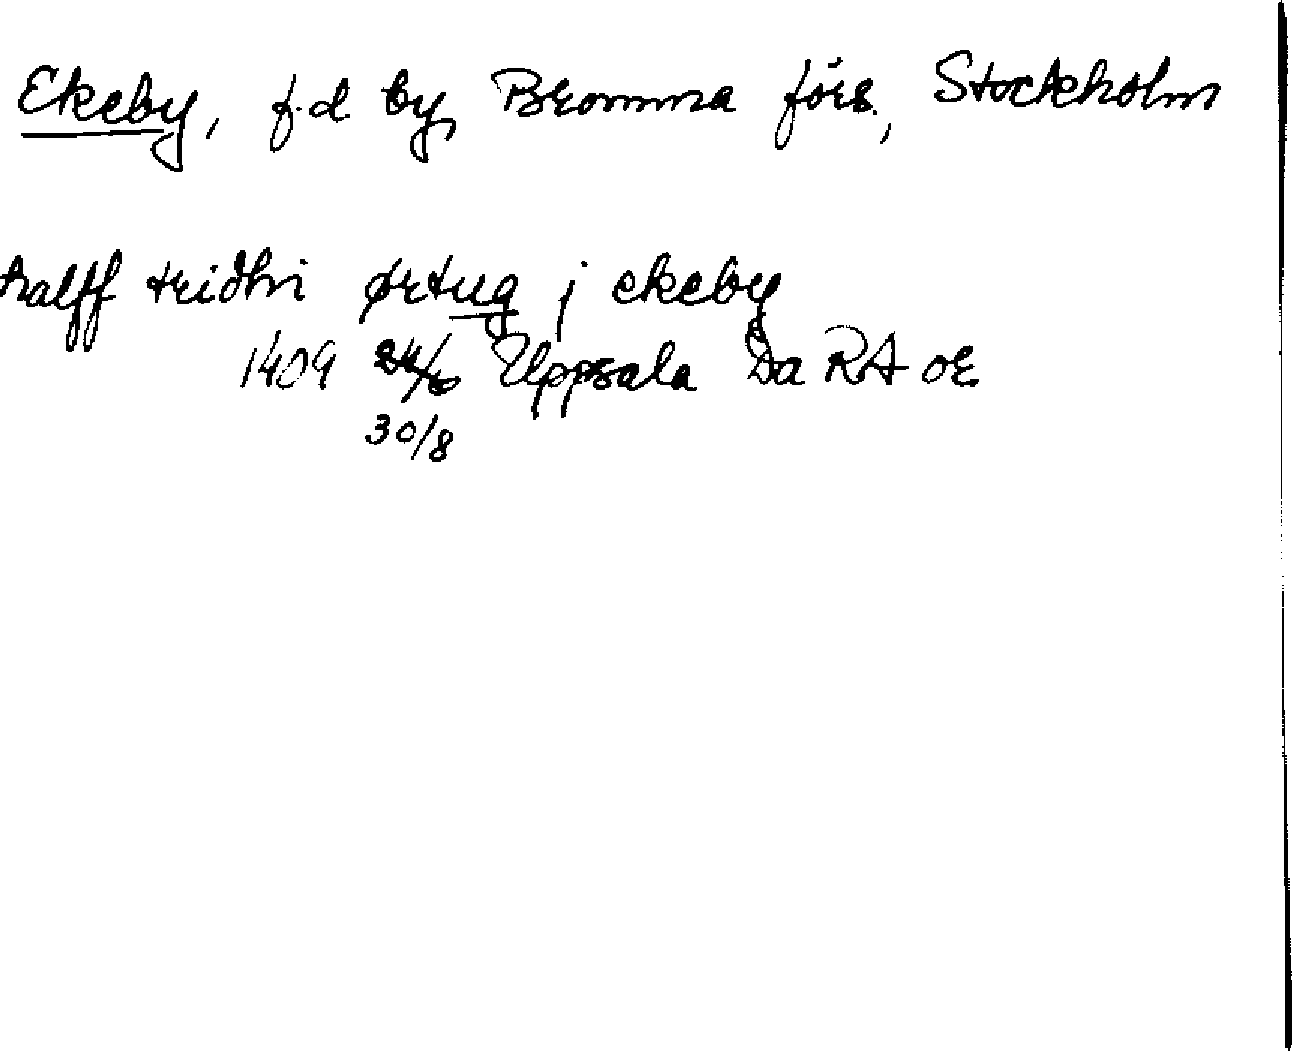 Ekeby, f.d. by, Bromma förs., Stockholm
halff tridhi ørtug j ekeby
1409 24/6 Uppsala Da RA or
30/8